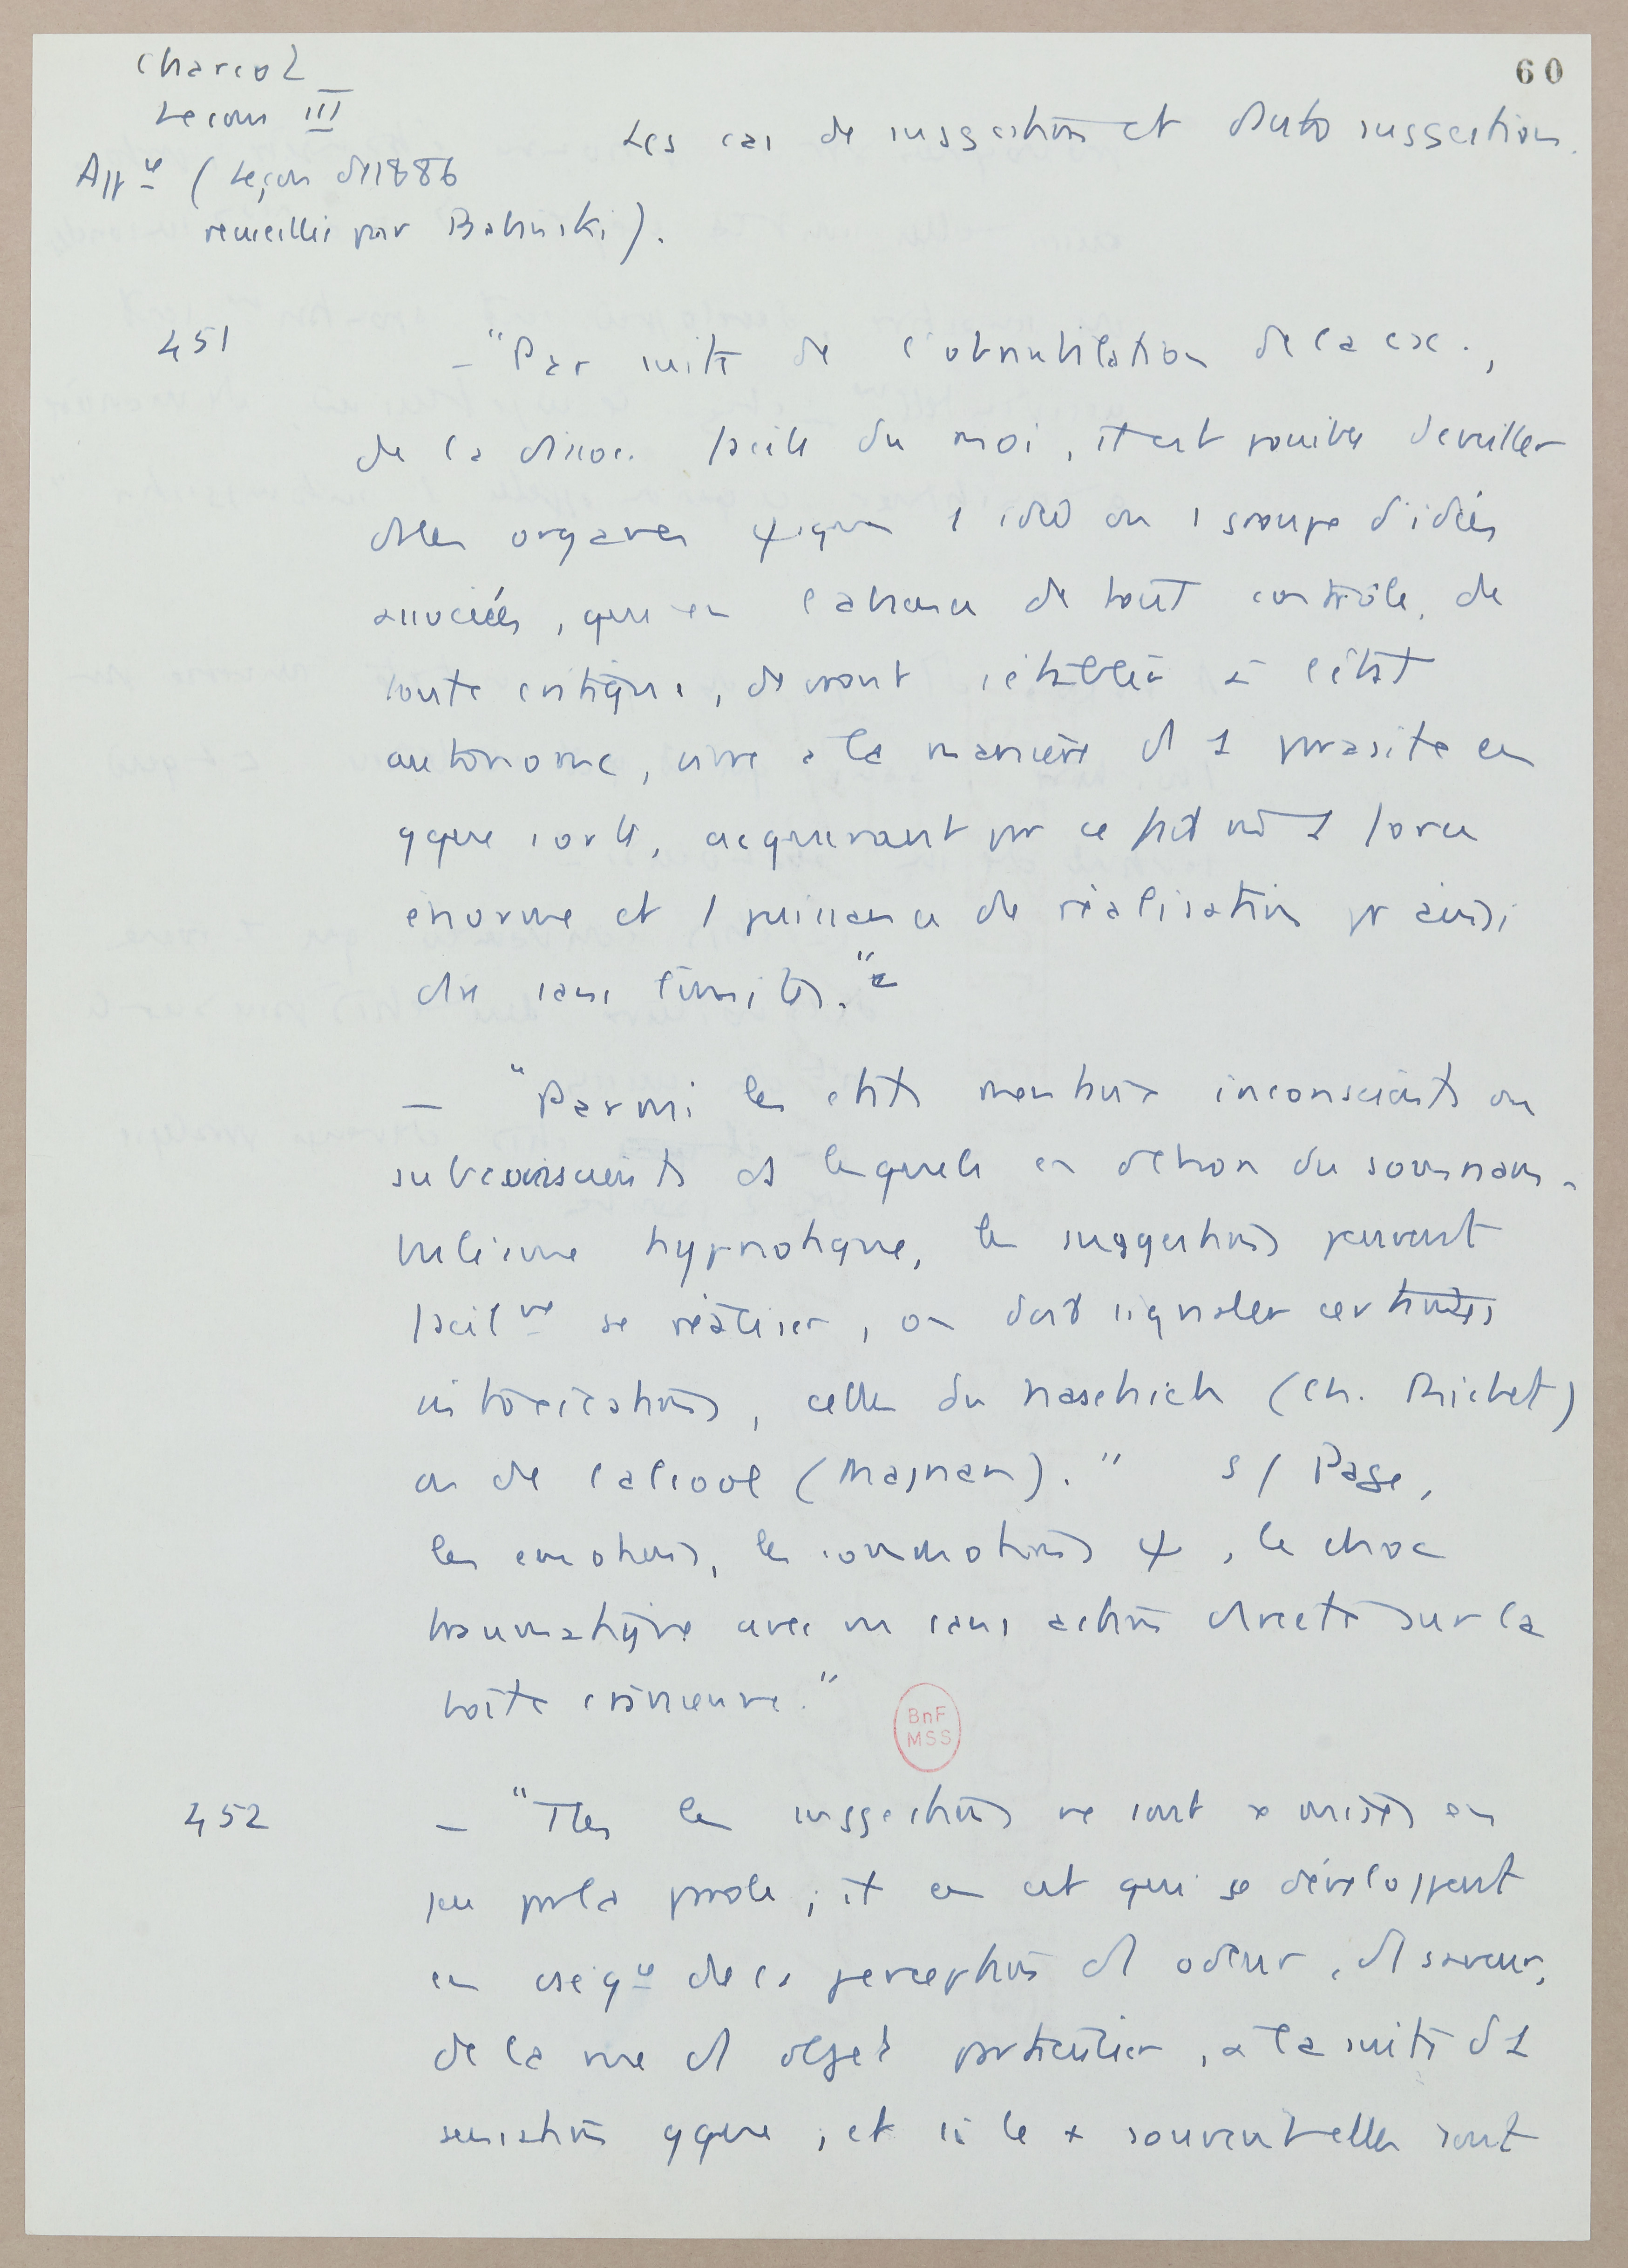 Charcot
60
Leçons III
Les cas de suggestion et d'auto suggestion.
Appce (Leçon de 1886
recueillie par Babinski).
451
— "Par suite de l'obnubilation de la csc.,
de la dissoc. facile du moi, il est possible d'éveiller
ds les organes ψiques 1 idée ou 1 groupe d'idées
associées, qui en l'absence de tout contrôle, de
toute critique, devront s'établir à l'état
autonome, vivre à la manière d'1 parasite en
qque sorte, acquérant par ce fait mê 1 force
énorme et 1 puissance de réalisation pr ainsi
dire sans limites."
— "Parmi les états mentaux inconscients ou
subconscients ds lesquels en dehors du somnam-
bulisme hypnotique, les suggestions peuvent
facilmt se réaliser, on doit signaler certaines
intoxications, celles du haschich (Ch. Richet)
ou de l'alcool (Magnan)." s/ Page,
les émotions, les commotions ψ, le choc
traumatique avec ou sans action directe sur la
boîte crânienne."
BnF
MSS
452
— "Ttes les suggestions ne sont x mises en
jeu par la parole ; il en est qui se développent
en cséqce de la perception d'1 odeur, d'1 saveur,
de la vue d'1 objet particulier, à la suite d'1
sensation qque, et si le + souvent elles sont